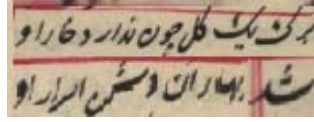 برک یک گل چون ندارد خار او
شد بهاران دشمن اسرار او